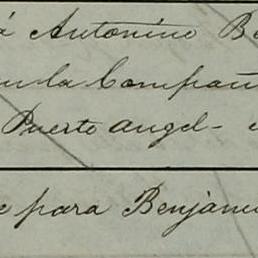 á Antonino
Compañ
Puerto angel -
para Benjami